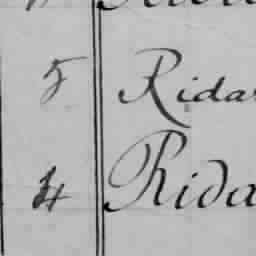 5 Rida
4 Rida